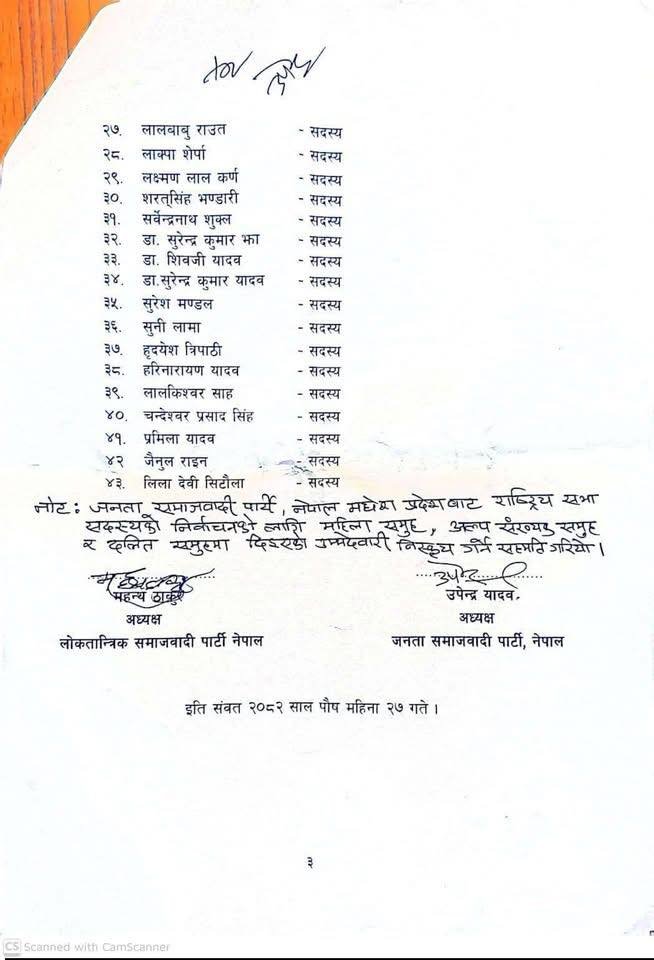 २७. लालबाबु राउत - सदस्य
२८. लाक्पा शेर्पा - सदस्य
२९. लक्ष्मण लाल कर्ण - सदस्य
३०. शरत्सिंह भण्डारी - सदस्य
३१. सर्वेन्द्रनाथ शुक्ल - सदस्य
३२. डा. सुरेन्द्र कुमार झा - सदस्य
३३. डा. शिवजी यादव - सदस्य
३४. डा.सुरेन्द्र कुमार यादव - सदस्य
३५. सुरेश मण्डल - सदस्य
३६. सुनी लामा - सदस्य
३७. हृदयेश त्रिपाठी - सदस्य
३८. हरिनारायण यादव - सदस्य
३९. लालकिश्वर साह - सदस्य
४०. चन्देश्वर प्रसाद सिंह - सदस्य
४१. प्रमिला यादव - सदस्य
४२ जैनुल राइन - सदस्य
४३. लिला देवी सिटौला - सदस्य
नोट: जनता समाजवादी पार्टी, नेपाल मधेश प्रदेशबाट राष्ट्रिय सभा
सदस्यको निर्वाचनको लागि महिला समुह, अल्प संख्यक समुह
र दलित समुहमा दिइएको उम्मेदवारी निस्कृय गर्न सहमति गरियो।
महन्थ ठाकुर उपेन्द्र यादव.
अध्यक्ष अध्यक्ष
लोकतान्त्रिक समाजवादी पार्टी नेपाल जनता समाजवादी पार्टी, नेपाल
इति संवत २०८२ साल पौष महिना २७ गते ।
३
CS Scanned with CamScanner